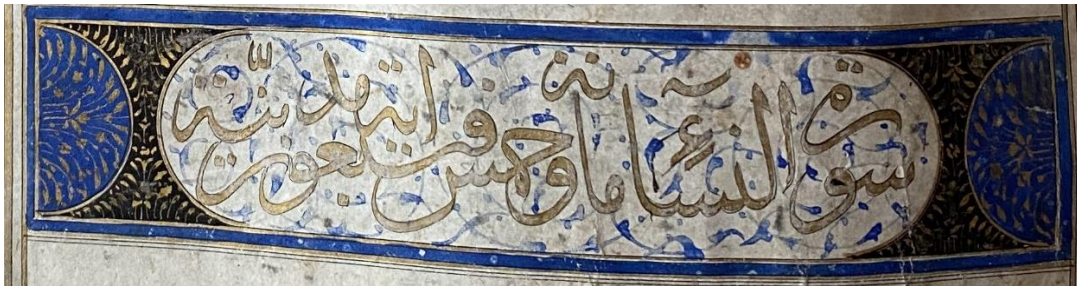 سورة النساء مائة وخمس وسبعون اية مدنية